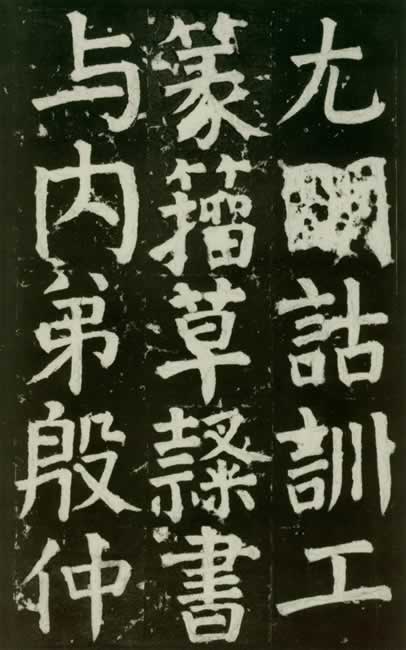 尤詁訓工
篆籀草隸書
与内弟殷仲